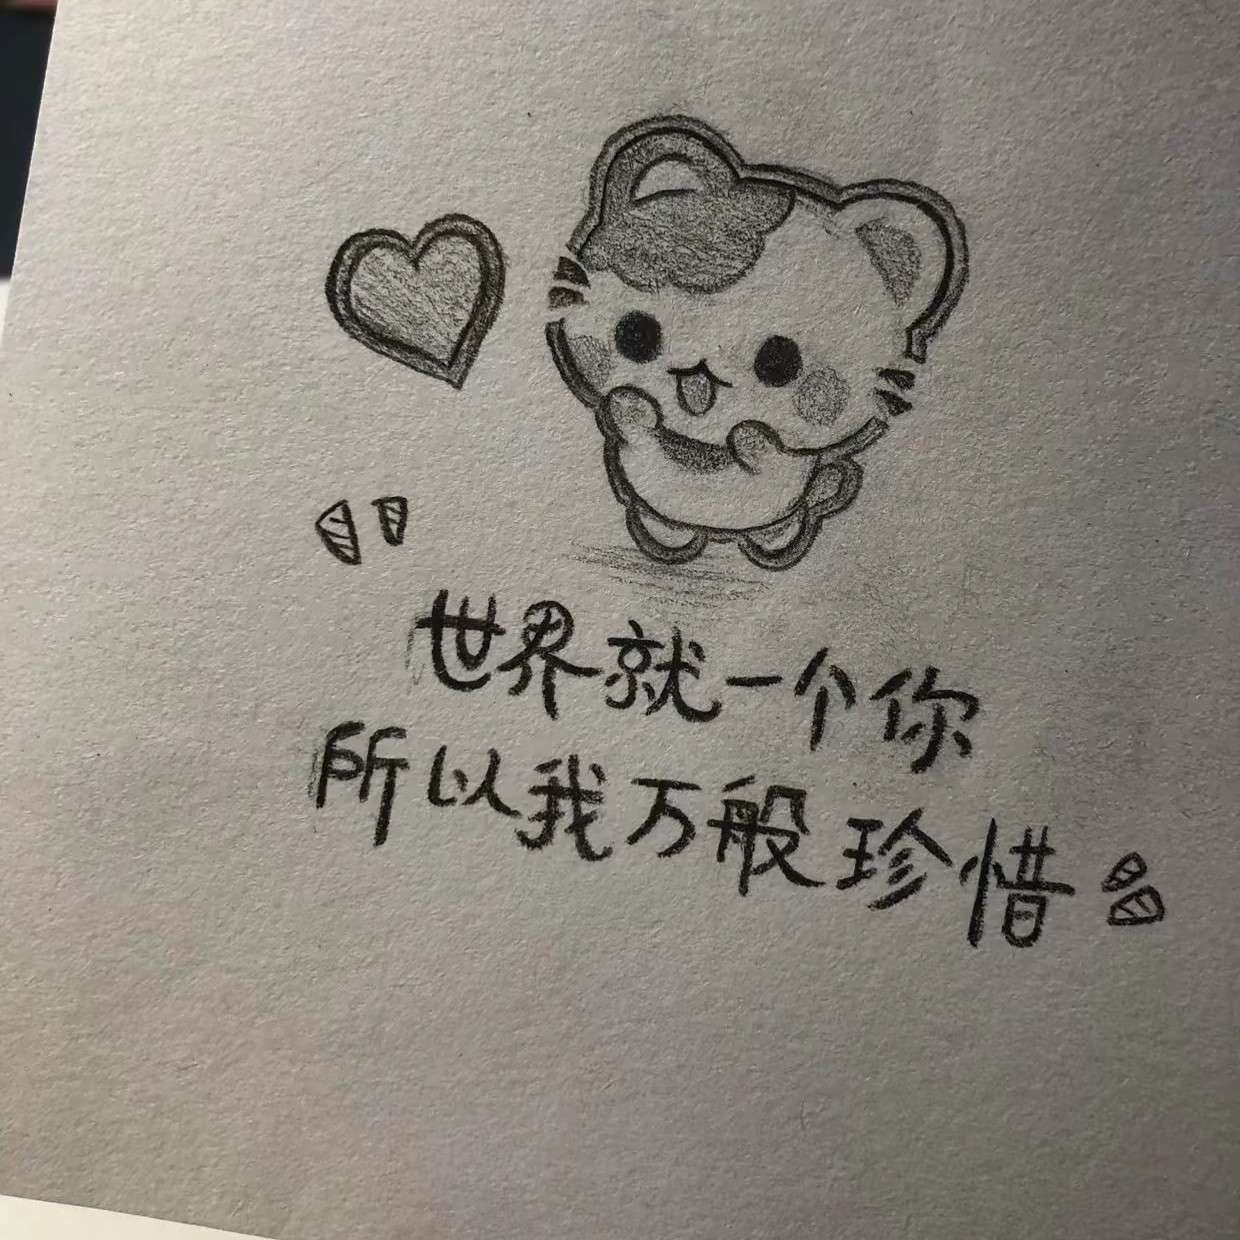 世界就一个你
所以我万般珍惜